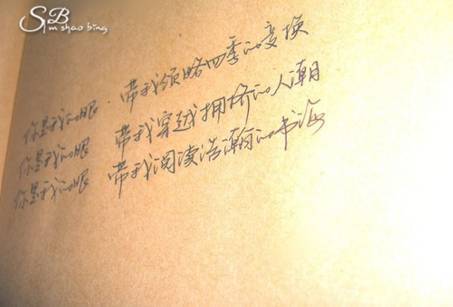 SB
Sun shao bing
你是我的眼.带我领略四季的变换
你是我的眼 带我穿越拥挤的人潮
你是我的眼 带我阅读浩瀚的书海